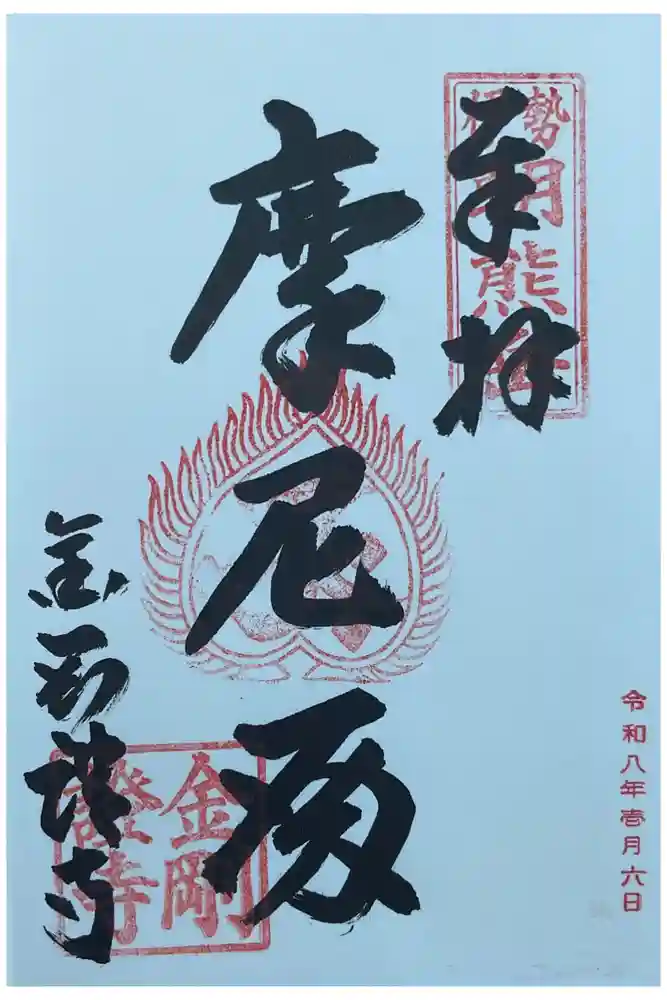 令和八年壱月六日
奉拝
伊勢朝熊岳
摩尼殿
金剛證寺
金剛
證寺